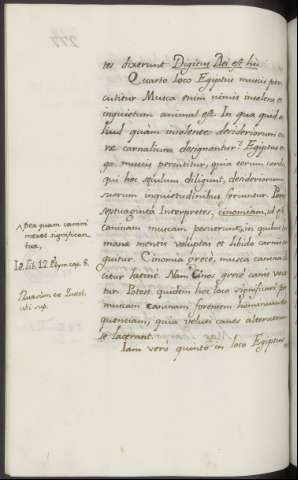 tes dixerunt Digitus Dei est hic
Quarto loco Egiptus muscis per
cutitur Musca enim nimis insolens et
inquietum animal est. In qua quid a
liud quàm insolentia desideriorum cu
re carnalium designantur? Egiptus er
go muscis percutitur, quia eorum corda
qui hoc sęculum diligunt, desideriorum
suorum inquietudinibus feriuntur. Porro
septuaginta Interpretes, cinomiam, id est
caninam muscam posuerunt, in qua
mana mentis voluptas et libido carnis
guitur. Cinomia grecè, musca canina di
citur latinè. Nam Cinos grecè canis voca
tur. Potest quidem hoc loco significari per
muscam caninam forensem humanarum
quentiam, quia veluti canes alterutrum
se lacerant.
Iam vero quinto in loco Egiptus
per quam canini
mores significan
tur,
Io. lib. 12 Etym. cap. 8.